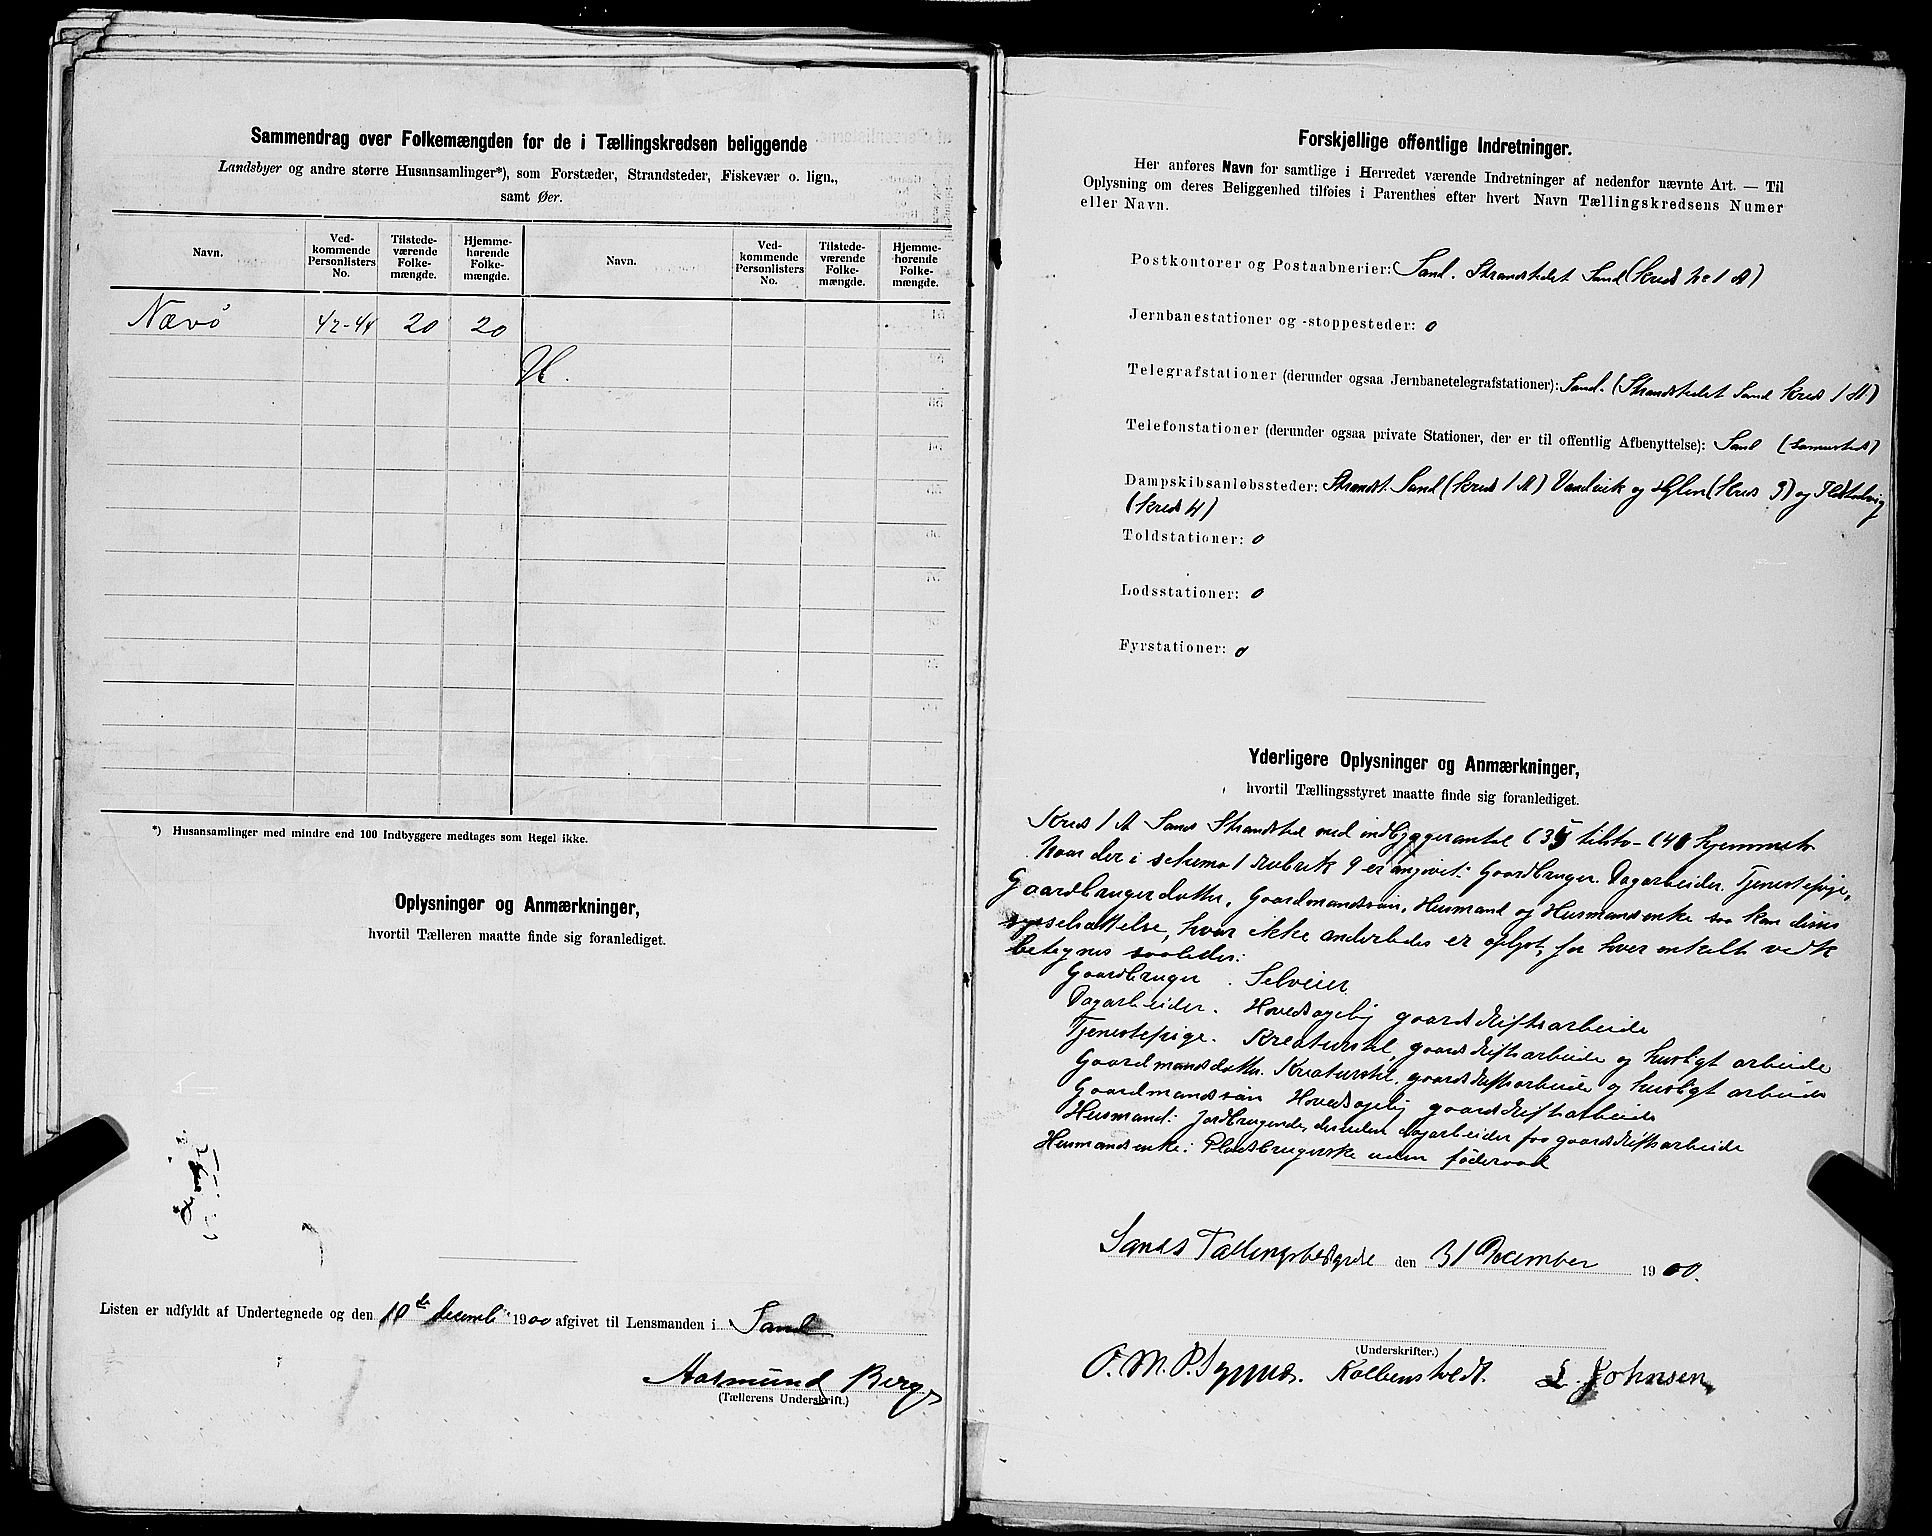 Sammendrag over Folkemængden for de i Tællingskredsen beliggende
Landsbyer og andre større Husansamlinger*), som Forstæder, Strandsteder, Fiskevær o. lign.,
samt Øer.
Navn. Ved-kommende Personlisters No. Tilstede-værende Folke-mængde. Hjemme-hørende Folke-mængde. Navn. Ved-kommende Personlisters No. Tilstede-værende Folke-mængde. Hjemme-hørende Folke-mængde.
Nævø 42-44 20 20
*) Husansamlinger med mindre end 100 Indbyggere medtages som Regel ikke.
Oplysninger og Anmærkninger,
hvortil Tælleren maatte finde sig foranlediget.
Listen er udfyldt af Undertegnede og den 10de decemb 1900 afgivet til Lensmanden i Sand
Aasmund Berge
(Tællerens Underskrift.)
Forskjellige offentlige Indretninger.
Her anføres Navn for samtlige i Herredet værende Indretninger af nedenfor nævnte Art. — Til
Oplysning om deres Beliggenhed tilføies i Parenthes efter hvert Navn Tællingskredsens Numer
eller Navn.
Postkontorer og Postaabnerier: Sand. Strandstedet Sand (Kreds No 1 A)
Jernbanestationer og -stoppesteder: 0
Telegrafstationer (derunder ogsaa Jernbanetelegrafstationer): Sand. (Strandstedet Sand Kreds 1 A)
Telefonstationer (derunder ogsaa private Stationer, der er til offentlig Afbenyttelse): Sand (sammesteds)
Dampskibsanløbssteder: Strandst. Sand (Kreds 1 A) Vandvik og Hylen (Kreds 3) og
(Kreds 4)
Toldstationer: 0
Lodsstationer: 0
Fyrstationer: 0
Yderligere Oplysninger og Anmærkninger,
hvortil Tællingsstyret maatte finde sig foranlediget.
Kreds 1 A Sands Strandsted med indbyggerantal
Naar der i schema 1 Rubrik 9 er angivet: Gaardbruger. Dagarbeider. Tjenestepige,
Gaardbrugerdatter, Gaardmandssøn, Husmand og Husmandsenke saa kan deres
sysselsættelse, hvor ikke anderledes er oplyst, for hver enkelt vedk
betegnes saaledes:
Gaardbruger. Selveier
Dagarbeider. Hovedsagelig gaardsdriftsarbeide
Tjenestepige. Kreaturstel, gaardsdriftsarbeide og husligt arbeide
Gaardmandsdatter. Kreaturstel, gaardsdriftsarbeide og husligt arbeide
Gaardmandssøn Hovedsagelig gaardsdriftsarbeide
Husmand: Jordbrugende, desuden dagarbeider for gaardsdriftsarbeide
Husmandsenke: Pladsbrugerske uden føderaad
Sands Tællingsbestyrelse den 31 December 1900.
(Underskrifter.)
O. M. P. Kolbenstvedt. L. Johnsen,